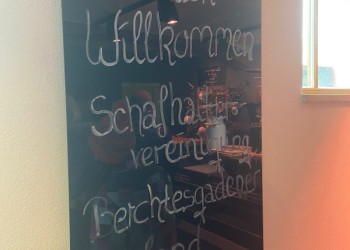 Willkommen
Schafhalter
vereinigung
Berchtesgadener
land